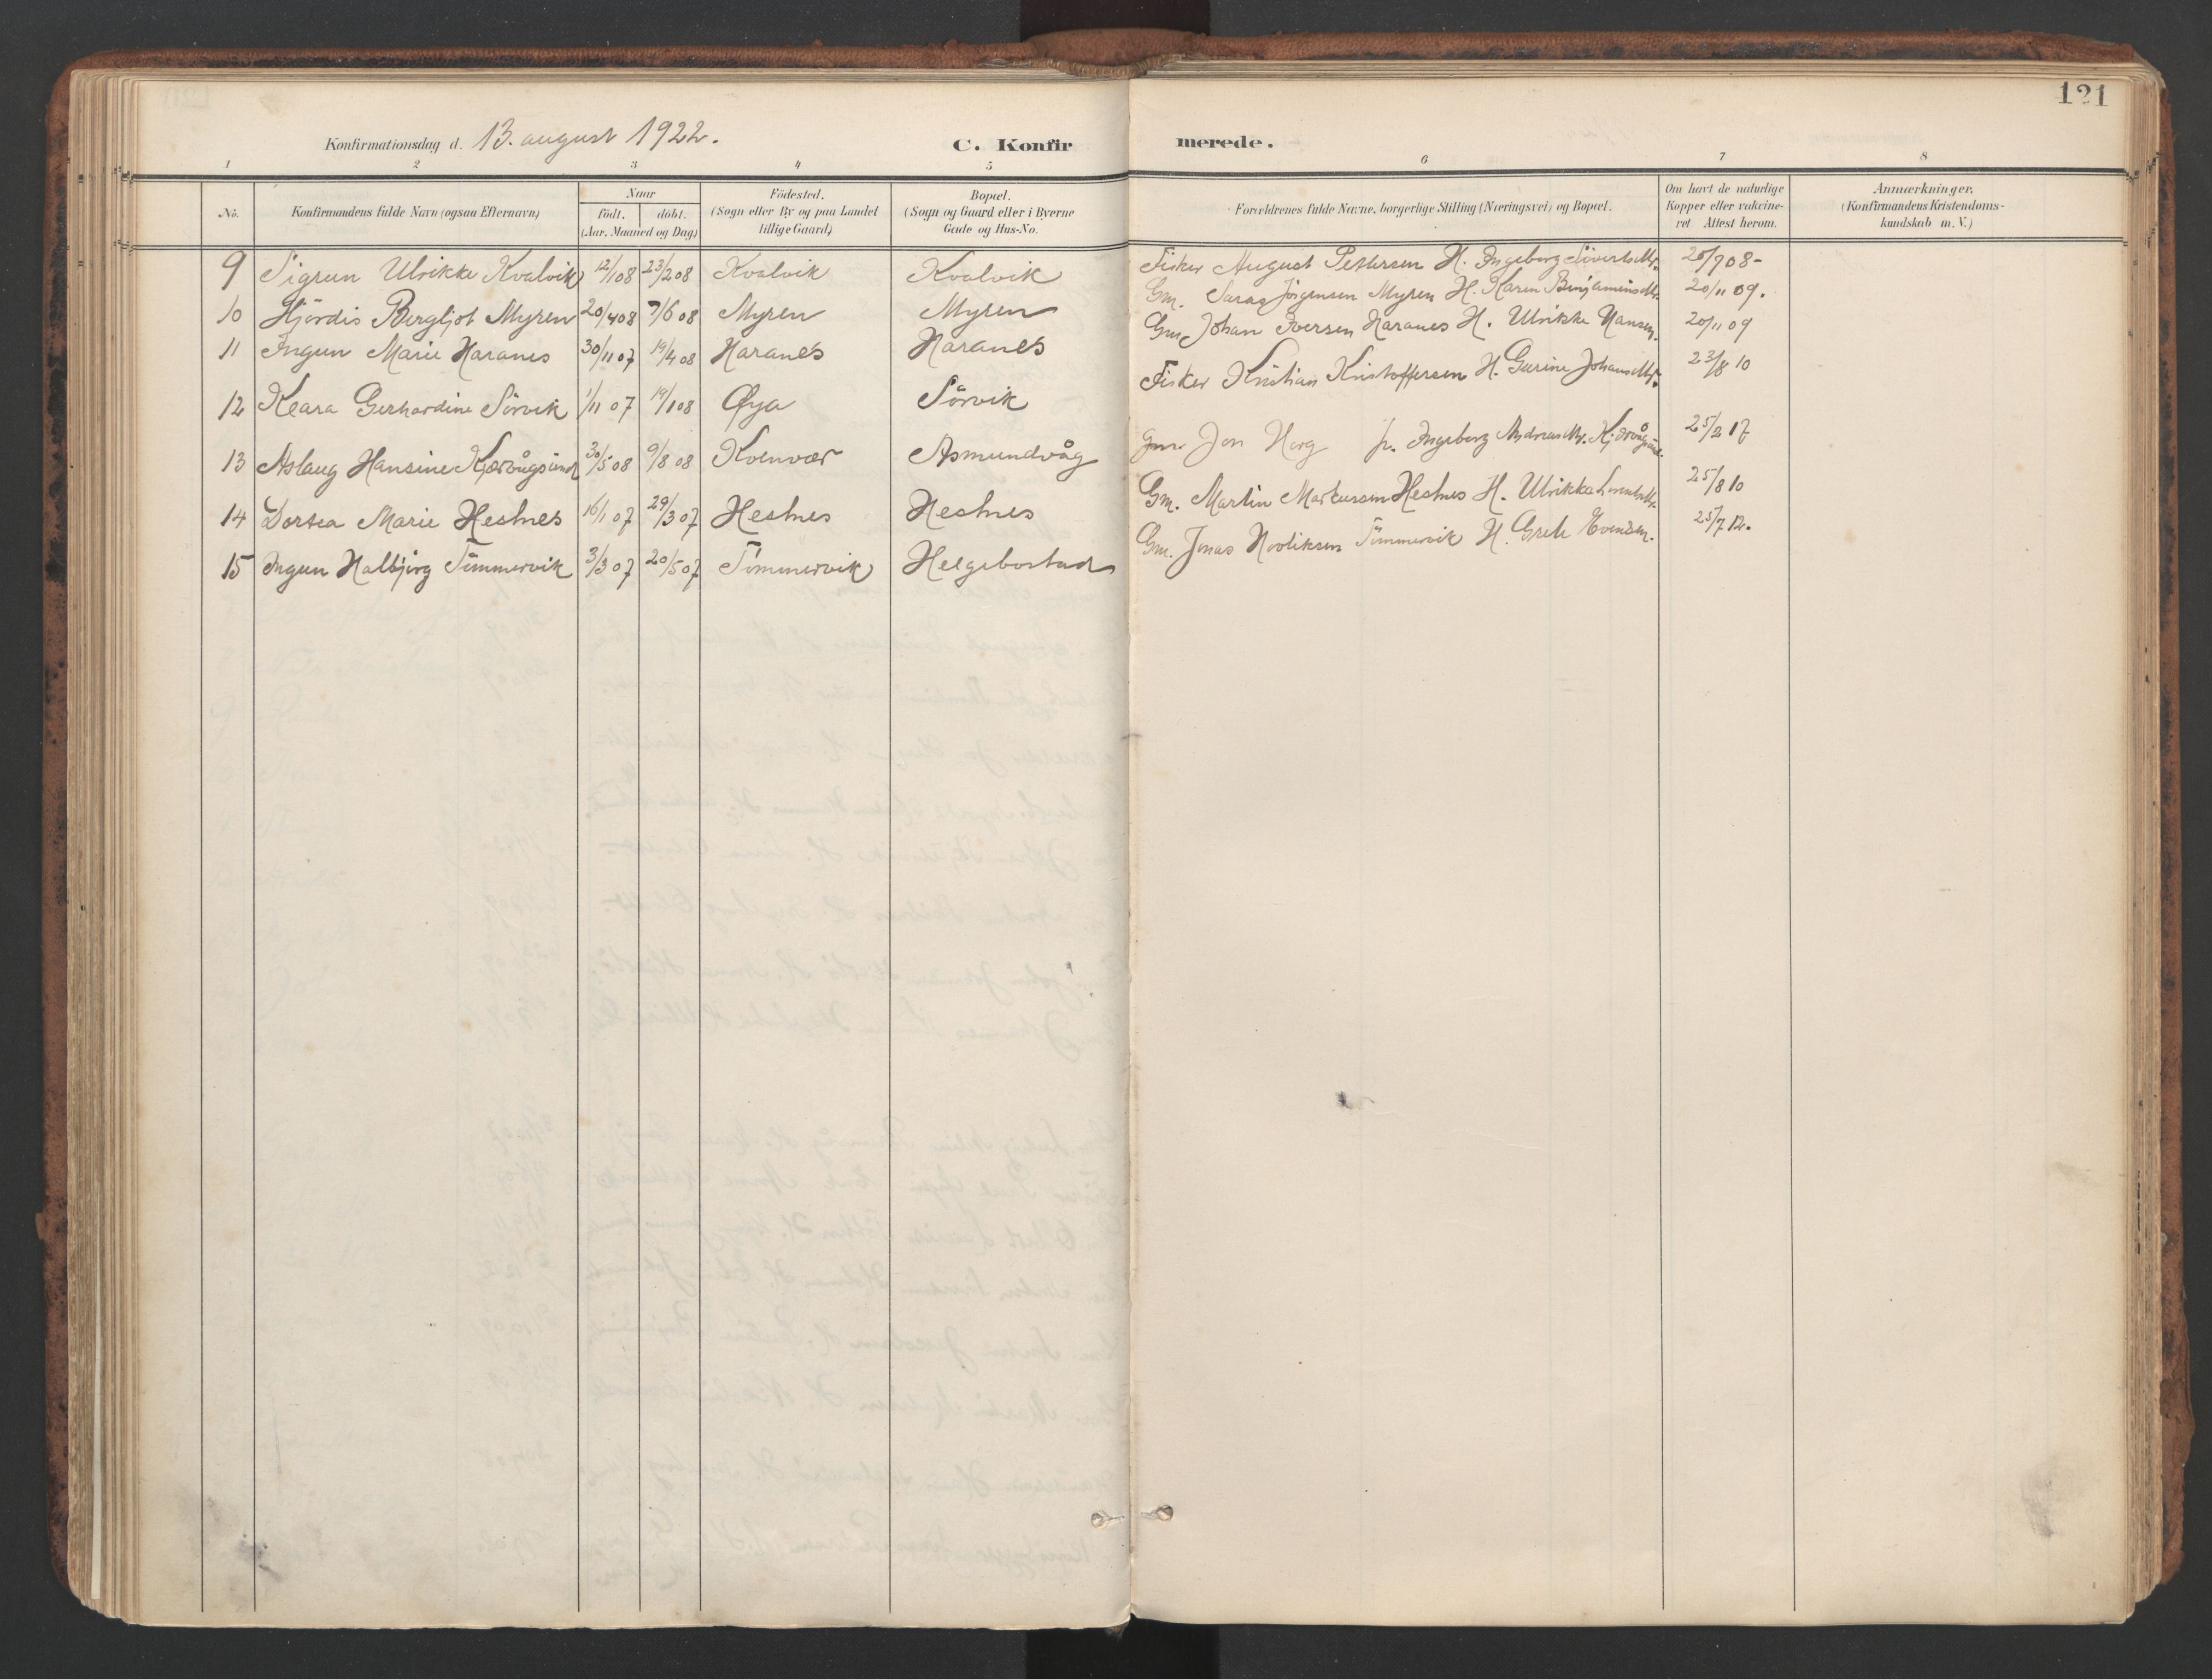 121
Konfirmationsdag d. 13. august 1922. C. Konfirmerede.
1 2 3 4 5 6 7 8
No.
Konfirmandens fulde Navn (ogsaa Efternavn)
Naar
født. døbt.
(Aar, Maaned og Dag)
Fødested.
(Sogn eller By og paa Landet
tillige Gaard)
Bopæl.
(Sogn og Gaard eller i Byerne
Gade og Hus-No.
Forældrenes fulde Navne, borgerlige Stilling (Næringsvei) og Bopæl.
Om havt de naturlige
Kopper eller vakcine-
ret Attest herom.
Anmærkninger.
(Konfirmandens Kristendoms-
kundskab m. V.)
9 Sigrun Ulrikke Kvalvik 12/1 08 23/2 08 Kvalvik Kvalvik Fisker August Pettersen H. Ingeborg Sivertsdtr. 28/9 08-
10 Hjördis Bergljot Myren 20/4 08 7/6 08 Myren Myren Gm. Jörgensen Myren H. Karen Benjaminsdtr. 20/11 09.
11 Ingun Marie Haranes 30/11 07 19/4 08 Haranes Haranes Gm Johan Iversen Haranes H. Ulrikke Hansen. 20/11 09
12 Klara Gerhardine Sörvik 1/11 07 19/1 08 Øya Sörvik Fisker Kristian Kristoffersen H. Gurine Johansdtr. 23/8 10
13 Aslaug Hansine Kjærvågsund 30/5 08 9/8 08 Kvenvær Asmundvåg Gm. Jon Horg fr. Ingeborg Andreasdtr. 25/2 17
14 Dortea Marie Hestnes 16/1 07 29/3 07 Hestnes Hestnes Gm. Martin Markussen Hestnes H. Ulrikka 25/8 10
15 Ingun Halbjörg Tömmervik 3/3 07 20/5 07 Tömmervik Helgebostad Gm. Jonas Tömmervik H. Grete Evensen. 25/7 12.